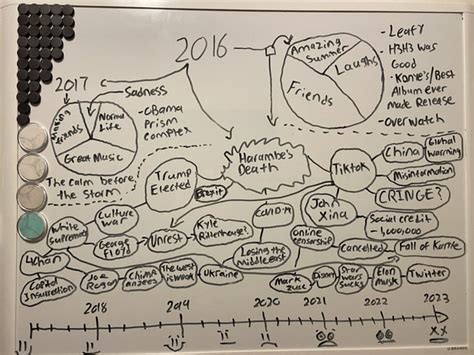 2016
Amazing
Summer
Laughs
Friends
- Leafy
- H3H3 was
Good
- Kanye's/Best
Album ever
made Release
- Overwatch
2017
Sadness
Making
Friends
Normal
Life
Great Music
- Obama
Prism
Complex
The calm before
the Storm
Trump
Elected
Harambe's
Death
Brexit
TikTok
China
Global
Warming
Misinformation
CRINGE?
John
Xina
Social credit
-1,000,000
White
supremacy
Culture
war
George
Floyd
Unrest
Kyle
Rittenhouse?
COVID-19
Online
Censorship
Cancelled?
Fall of Kanye
4Chan
Capitol
Insurrection
Joe
Rogan
Chimp
anzees
The west
is weak
Ukraine
Losing the
middle east
Mark
Zucc
Disney
Star
wars
Sucks
Elon
Musk
Twitter
2018
2019
2020
2021
2022
2023